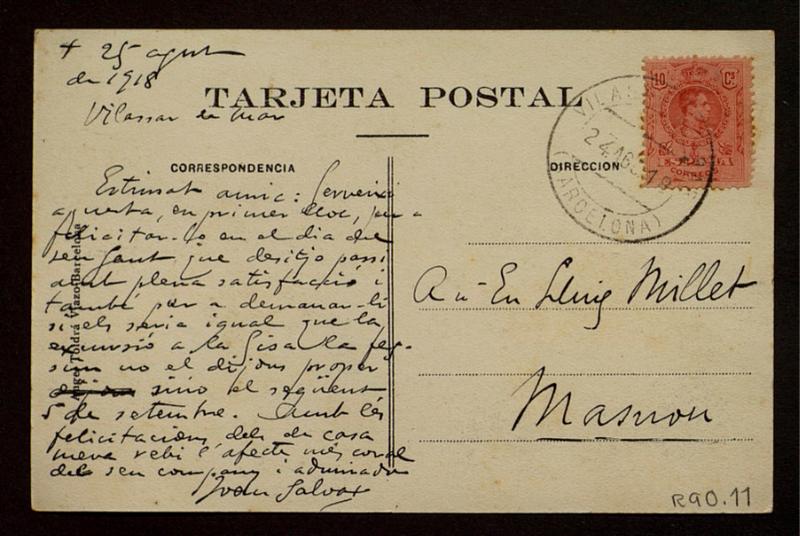 + 25 agost
de 1918
Vilassar de Mar
TARJETA POSTAL
CORRESPONDENCIA
DIRECCION
10 Cs
CORREOS
VILAS
24 AG
(BARCELONA)
Estimat amic: Serveixi
aquesta, en primer lloc, per a
felicitar-lo en el dia del
seu Sant que desitjo passi
amb plena satisfacció i
també per a demanar-li
si els seria igual que la
excursió a la Gisa la fes-
sim no el dijous proper
sino el següent
5 de setembre. Amb les
felicitacions dels de casa
meva rebi l'afecte més coral
del seu company i admirador
Joan Salvat
Angel Toldrá Viazo Barcelona
A'n En Lluis Millet
Masnou
R90.11